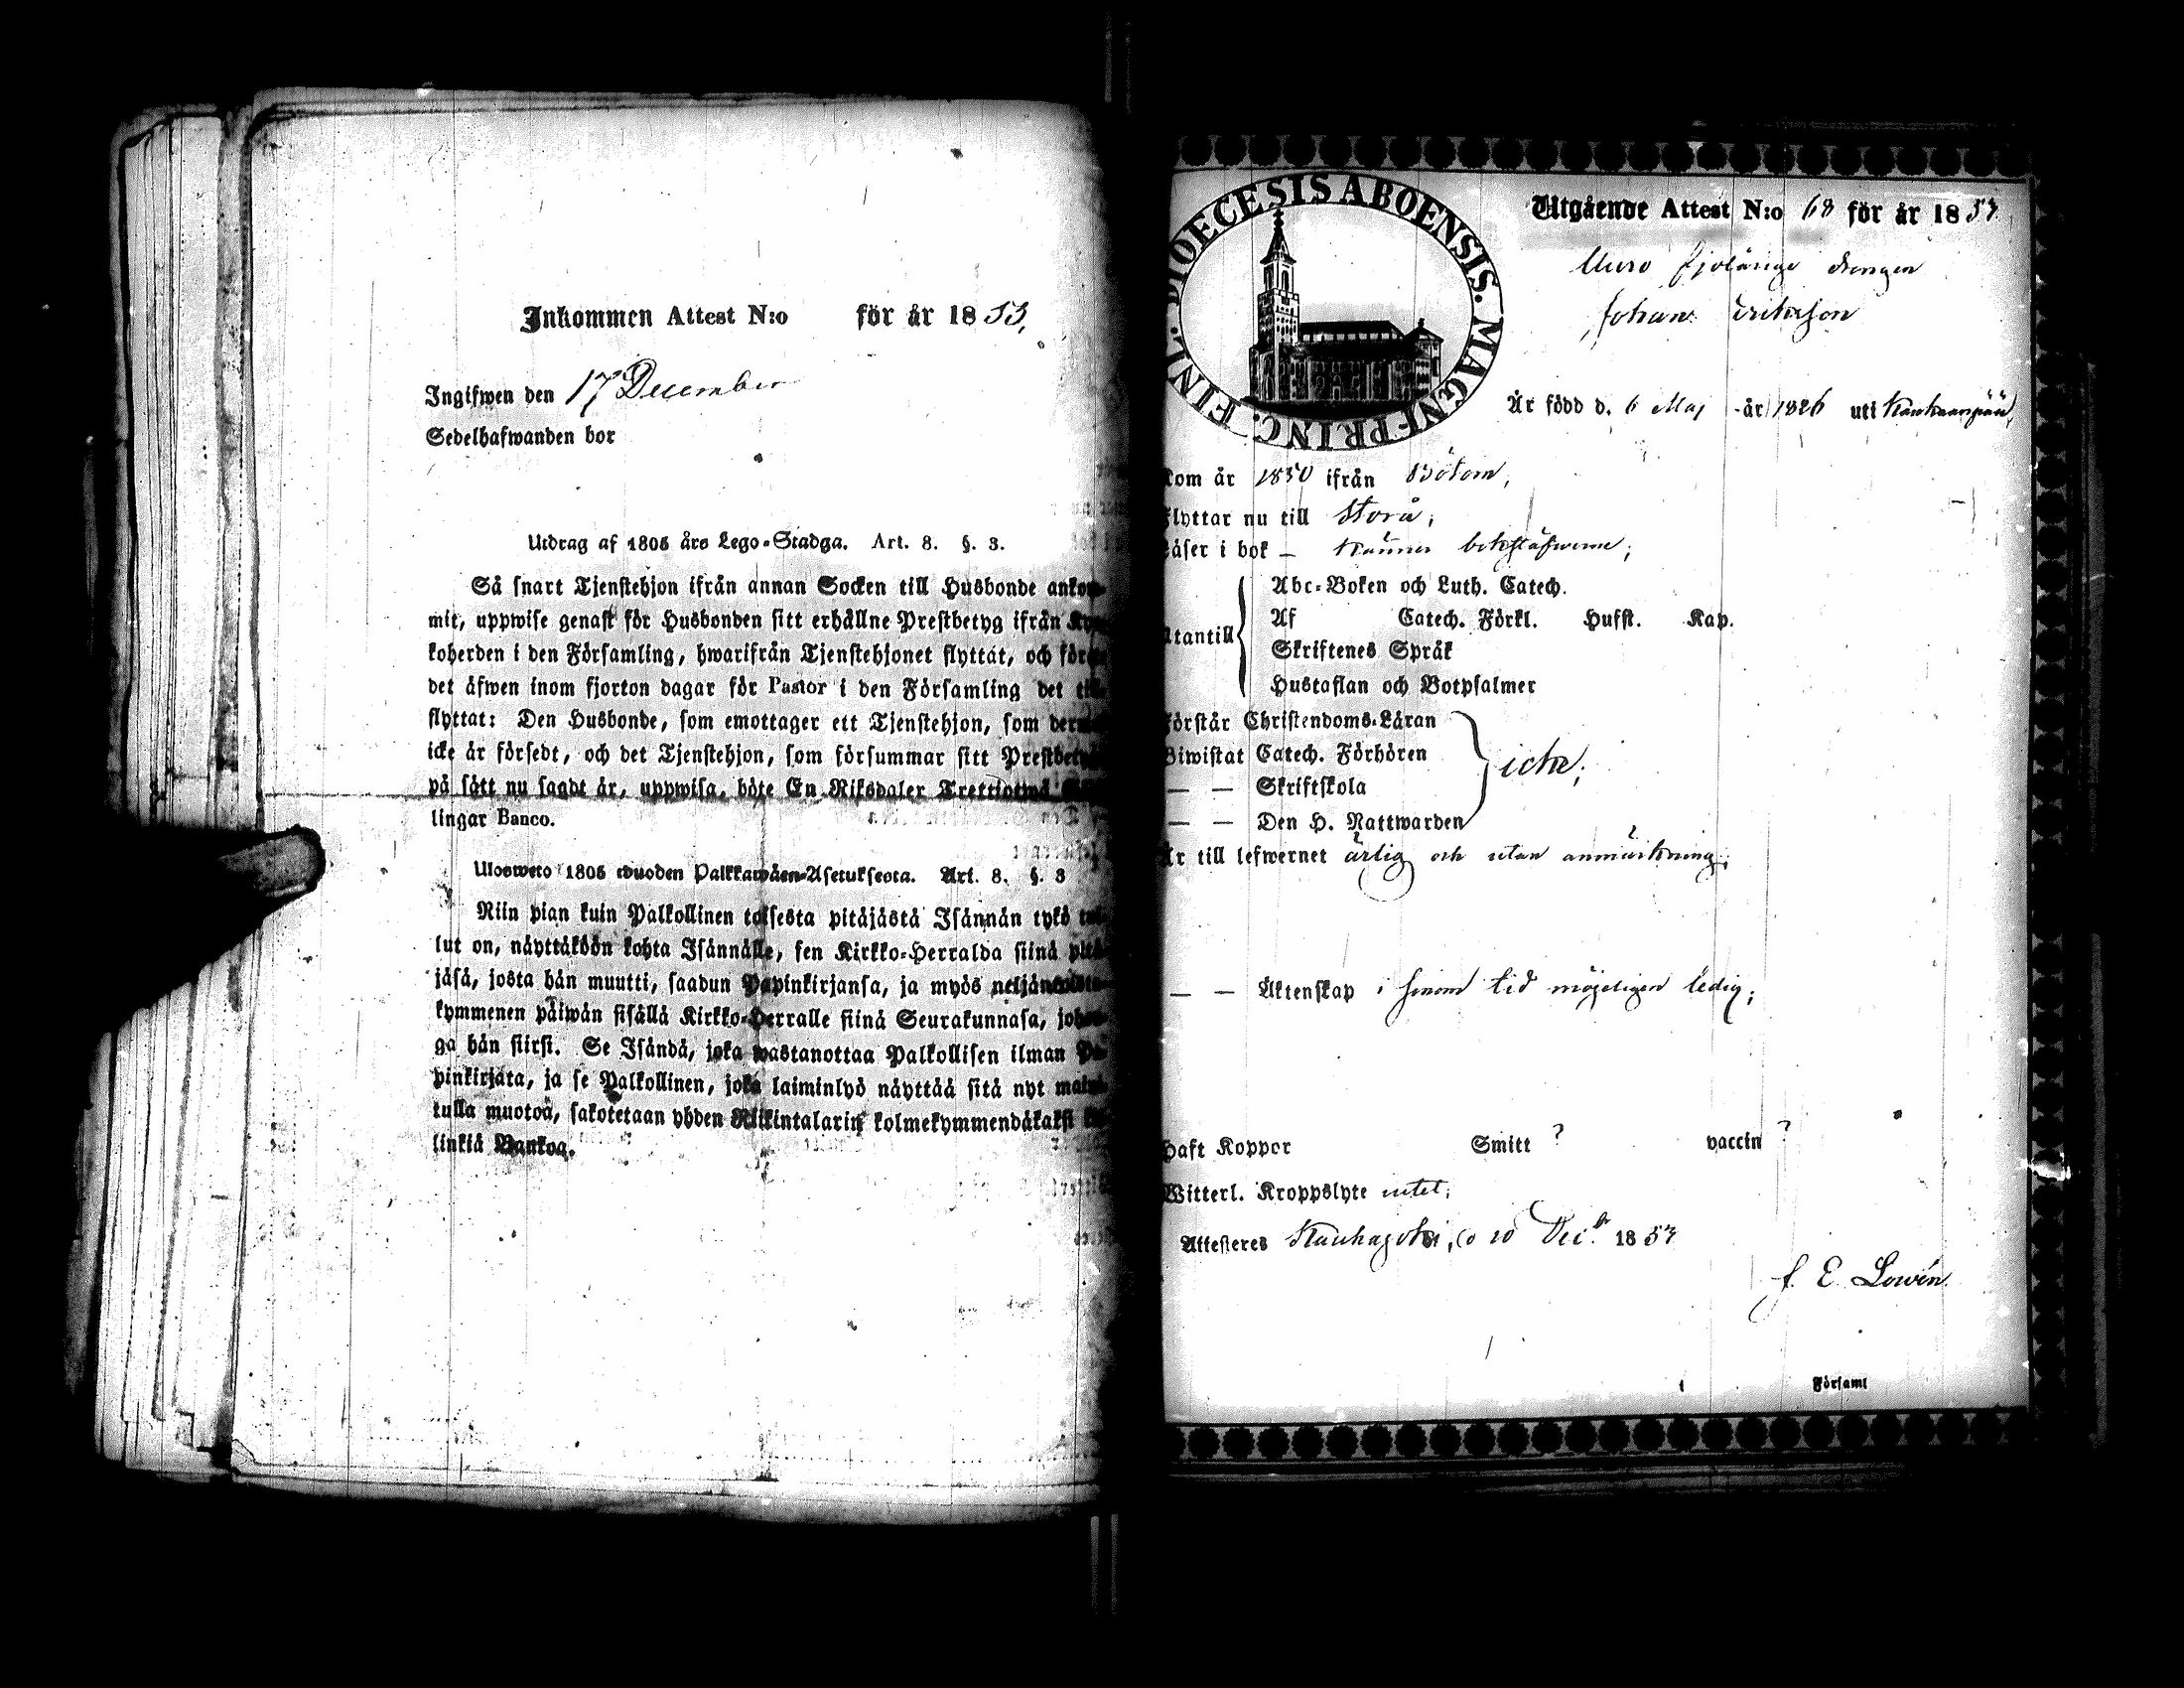 Inkommen Attest N:o för år 1853,
Ingifwen den 17 December
Sedelhafwanden bor
Utdrag af 1805 års Lego-Stadga. Art. 8. §. 3.
Så snart Tjenstehjon ifrån annan Socken till Husbonde
mit, uppwise genast för Husbonden sitt erhållne Prestbetyg ifrån
koherden i den Församling, hwarifrån Tjenstehjonet flyttat, och
det äfwen inom fjorton dagar för Pastor i den Församling det
flyttat: Den Husbonde, som emottager ett Tjenstehjon, som
icke är försedt, och det Tjenstehjon, som försummar sitt
på sätt nu sagdt är, uppwisa, böte En Riksdaler Trettiotwå
lingar Banco.
Uloswеto 1805 wuoden Palkkawäen-Asetuksesta. Art. 8. §. 3
Niin pian kuin Palkollinen toisesta pitäjästä Isännän tykö
lut on, näyttäköön kohta Isännälle, sen Kirkko-Herralda siinä
jäsä, josta hän muutti, saadun Papinkirjansa, ja myös
kymmenen päiwän sisällä Kirkko-Herralle siinä Seurakunnasa,
ga hän siirsi. Se Isändä, joka wastanottaa Palkollisen ilman
pinkirjata, ja se Palkollinen, joka laiminlyö näyttää sitä nyt
tulla muotoa, sakotetaan yhden Riikintalarin kolmekymmendäkaksi
linkiä Bankoa.
DIOECESIS ABOENSIS. MAGNI-PRINC. FINL.
Utgående Attest N:o 68 för år 1853
drengen
Johan Erikson
Är född d. 6 Maj år 1826 uti Kankaanpää,
kom år 1850 ifrån Bötom,
flyttar nu till Storå;
läser i bok – känner bokstäfwerne;
Utantill
Abc-Boken och Luth. Catech.
Af Catech. Förkl. Hufst. Kap.
Skriftenes Språk
Hustaflan och Botpsalmer
Förstår Christendoms-Läran
Biwistat Catech. Förhören
— — Skriftskola
— — Den H. Nattwarden
icke;
Är till lefwernet ärlig och utan anmärkning;
— — Äktenskap i sinom tid möjeligen ledig;
Haft Koppor Smitt ? vaccin ?
Witterl. Kroppslyte intet;
Attesteres Kauhajoki, d 10 Dec:br 1853
f. E. Lowén
Församl